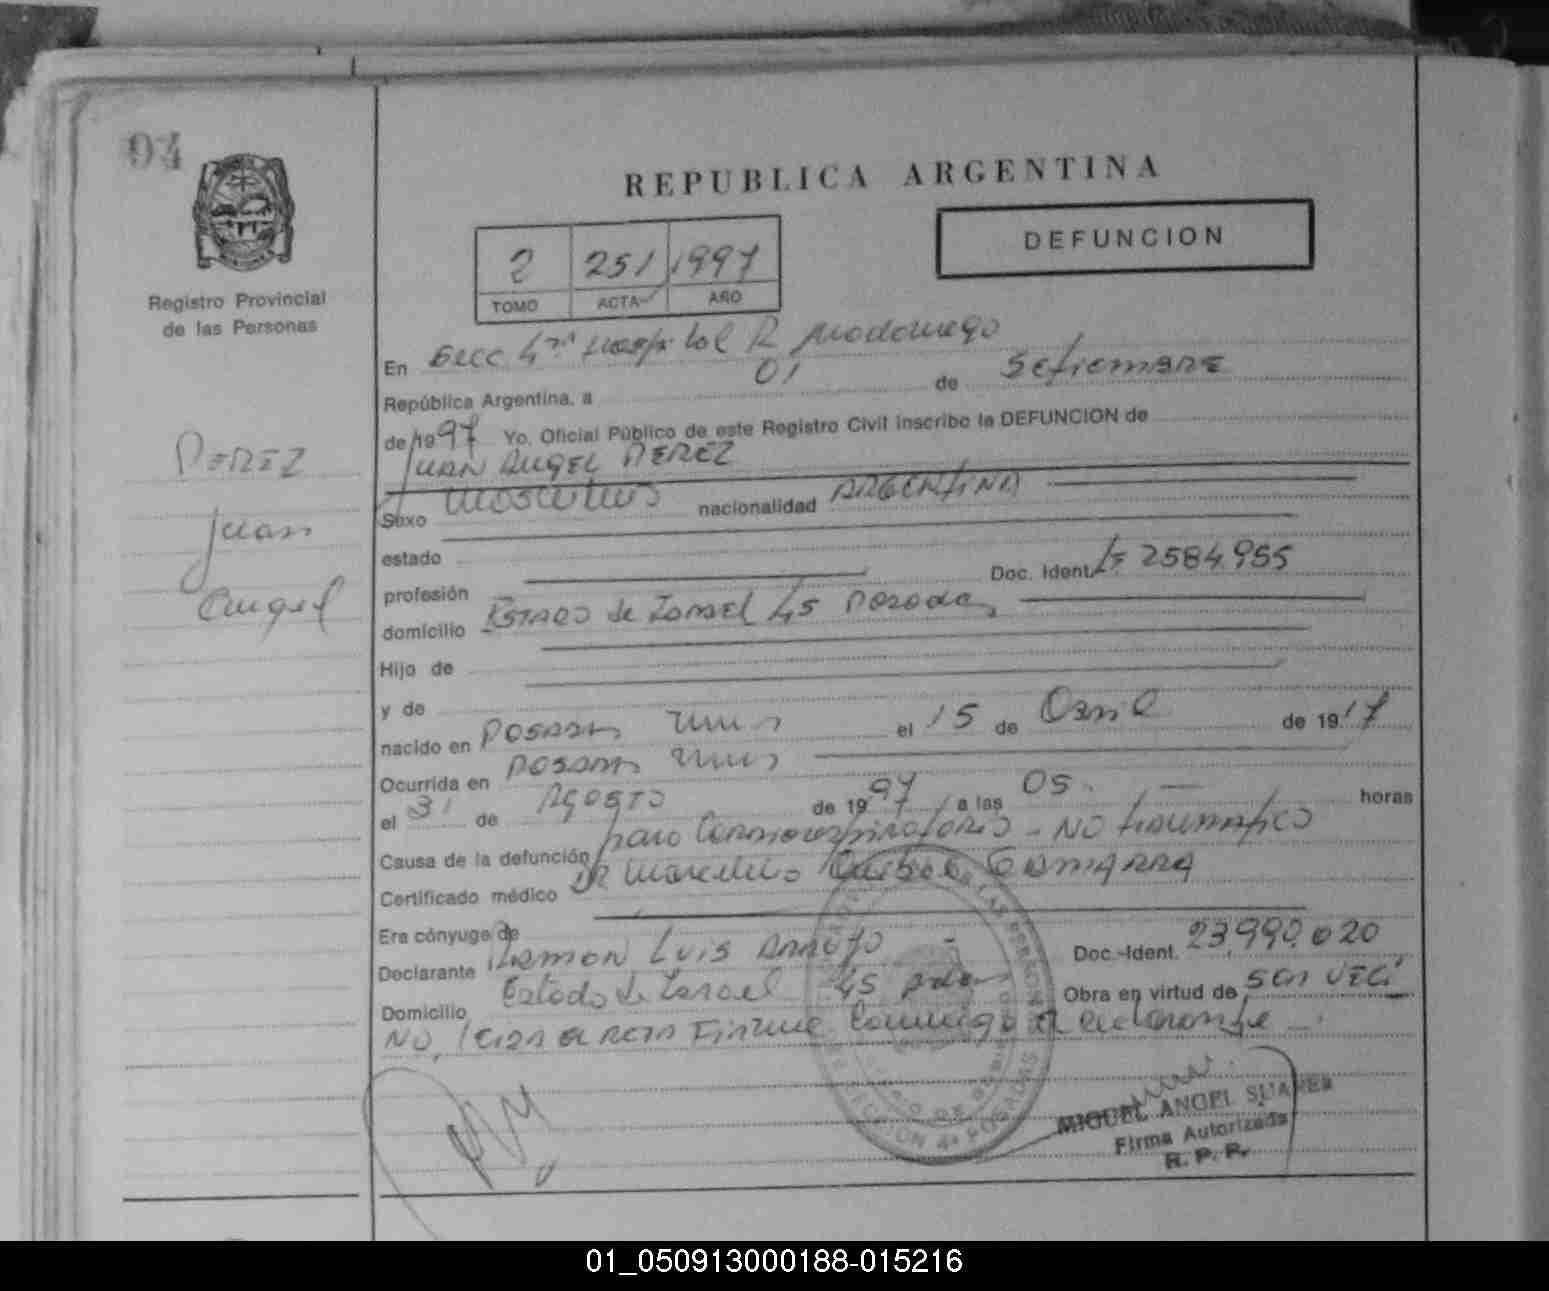 94
Registro Provincial
de las Personas
REPUBLICA ARGENTINA
DEFUNCION
2 251 1997
TOMO ACTA AÑO
En Secc. 4ta Hospital R Madariaga
República Argentina, a 01 de Setiembre
de 1997 Yo, Oficial Público de este Registro Civil inscribo la DEFUNCION de
JUAN ANGEL PEREZ
Sexo masculino nacionalidad ARGENTINA
estado
profesión Doc. Ident. 2584.955
domicilio ESTADO de Israel 45 Posadas
Hijo de
y de
nacido en Posadas el 15 de Abril de 1917
Ocurrida en Posadas
el 31 de AGOSTO de 1997 a las 05. horas
Causa de la defunción paro Cardiorespiratorio - NO traumatico
Certificado médico Dr Marcelino GAMARRA
Era cónyuge de
Declarante RAMON LUIS Doc.-Ident. 23.990.020
Domicilio Estado de Israel 45 Obra en virtud de ser VECI
NO, leida el acta Firma Conmigo el declarante
PEREZ
Juan
Angel
SECCION 4ª POSADAS
MIGUEL ANGEL SUAREZ
Firma Autorizada
R. P. P.
01_050913000188-015216